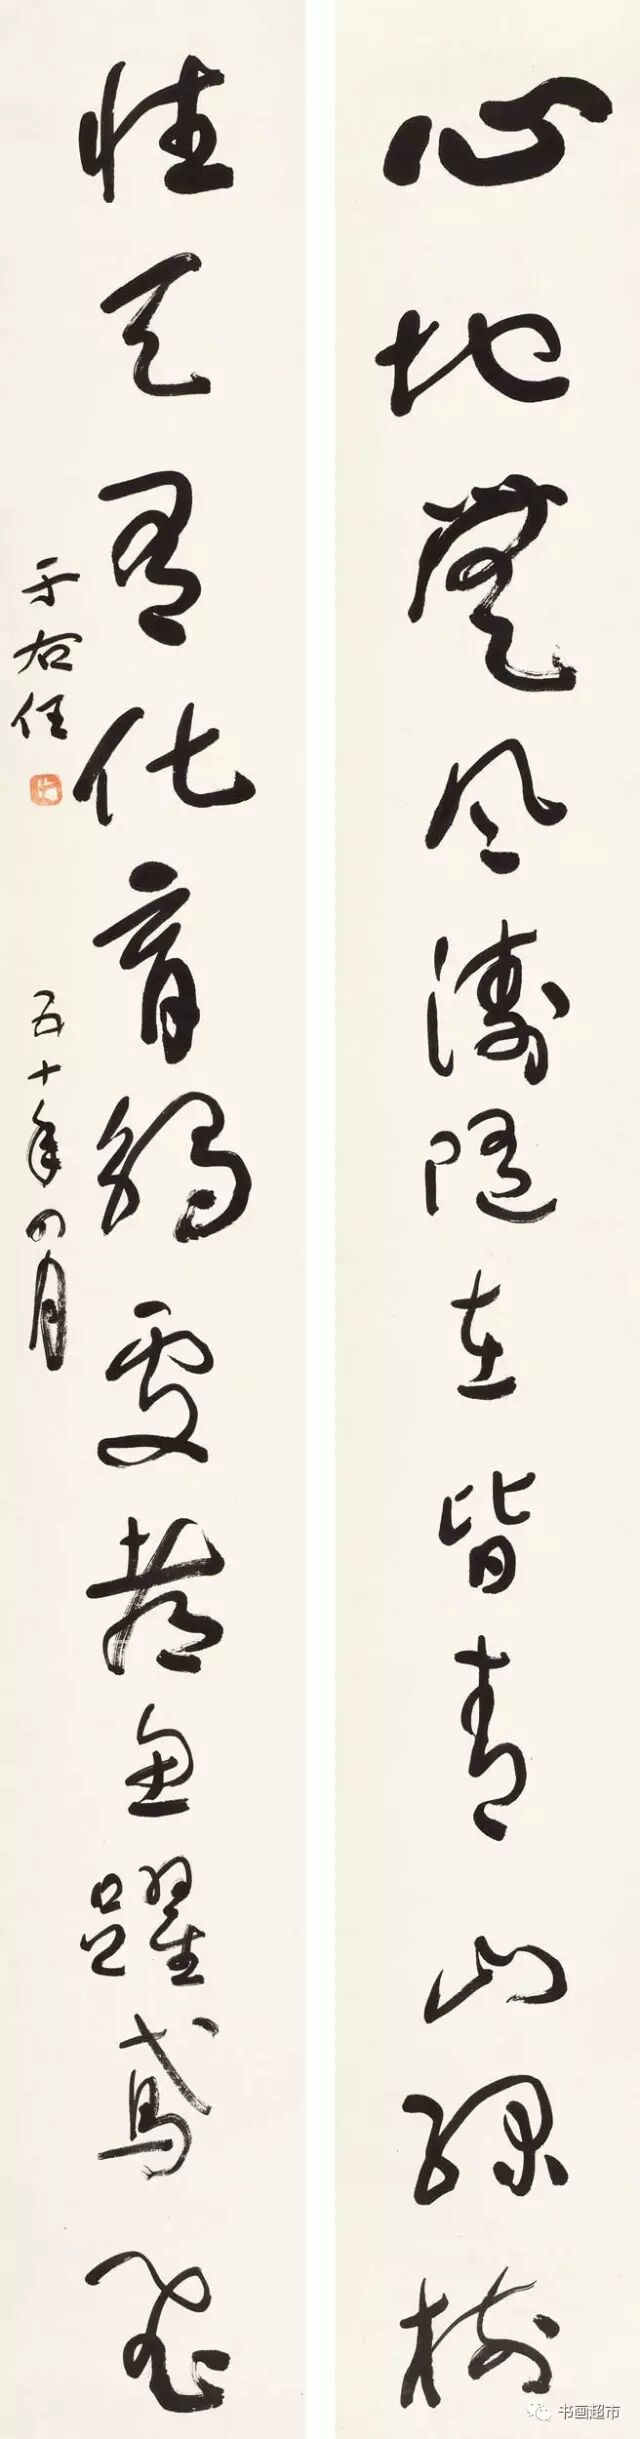 心地無風濤隨在皆青山綠樹
性天有化育觸處都魚躍鳶飛
于右任
五十年四月
书画超市